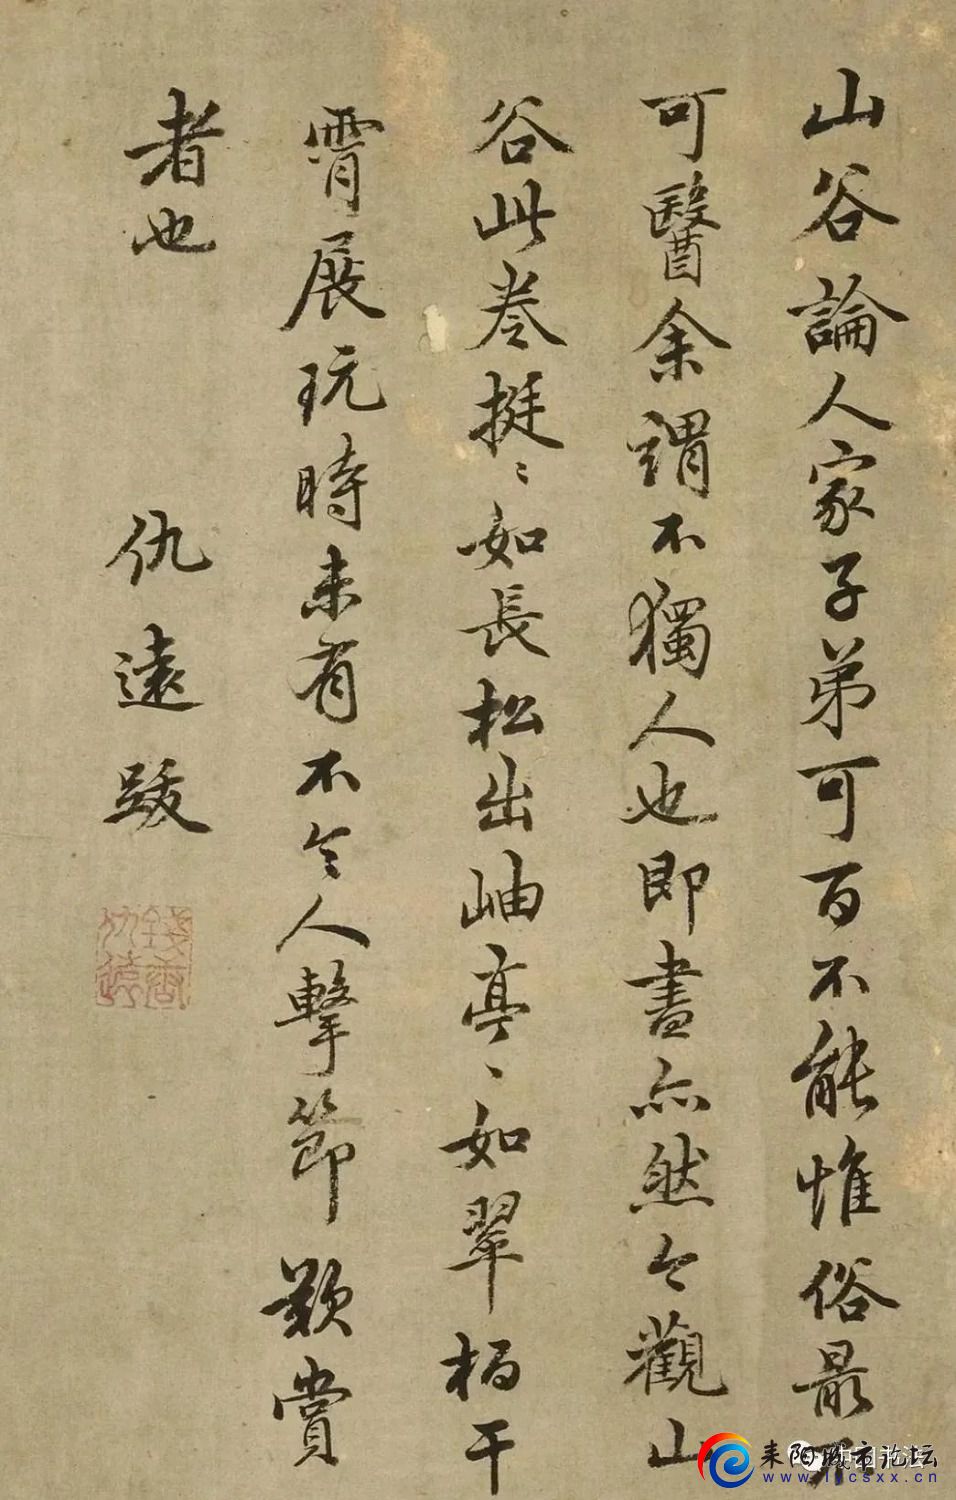 山谷論人家子弟可百不能惟俗最不
可醫余謂不獨人也即書亦然今觀山
谷此卷挺〻如長松出岫亭〻如翠柏干
霄展玩時未有不令人擊節歎賞
者也 仇遠跋
錢唐仇遠
耒阳城市论坛
www.lycsxx.cn